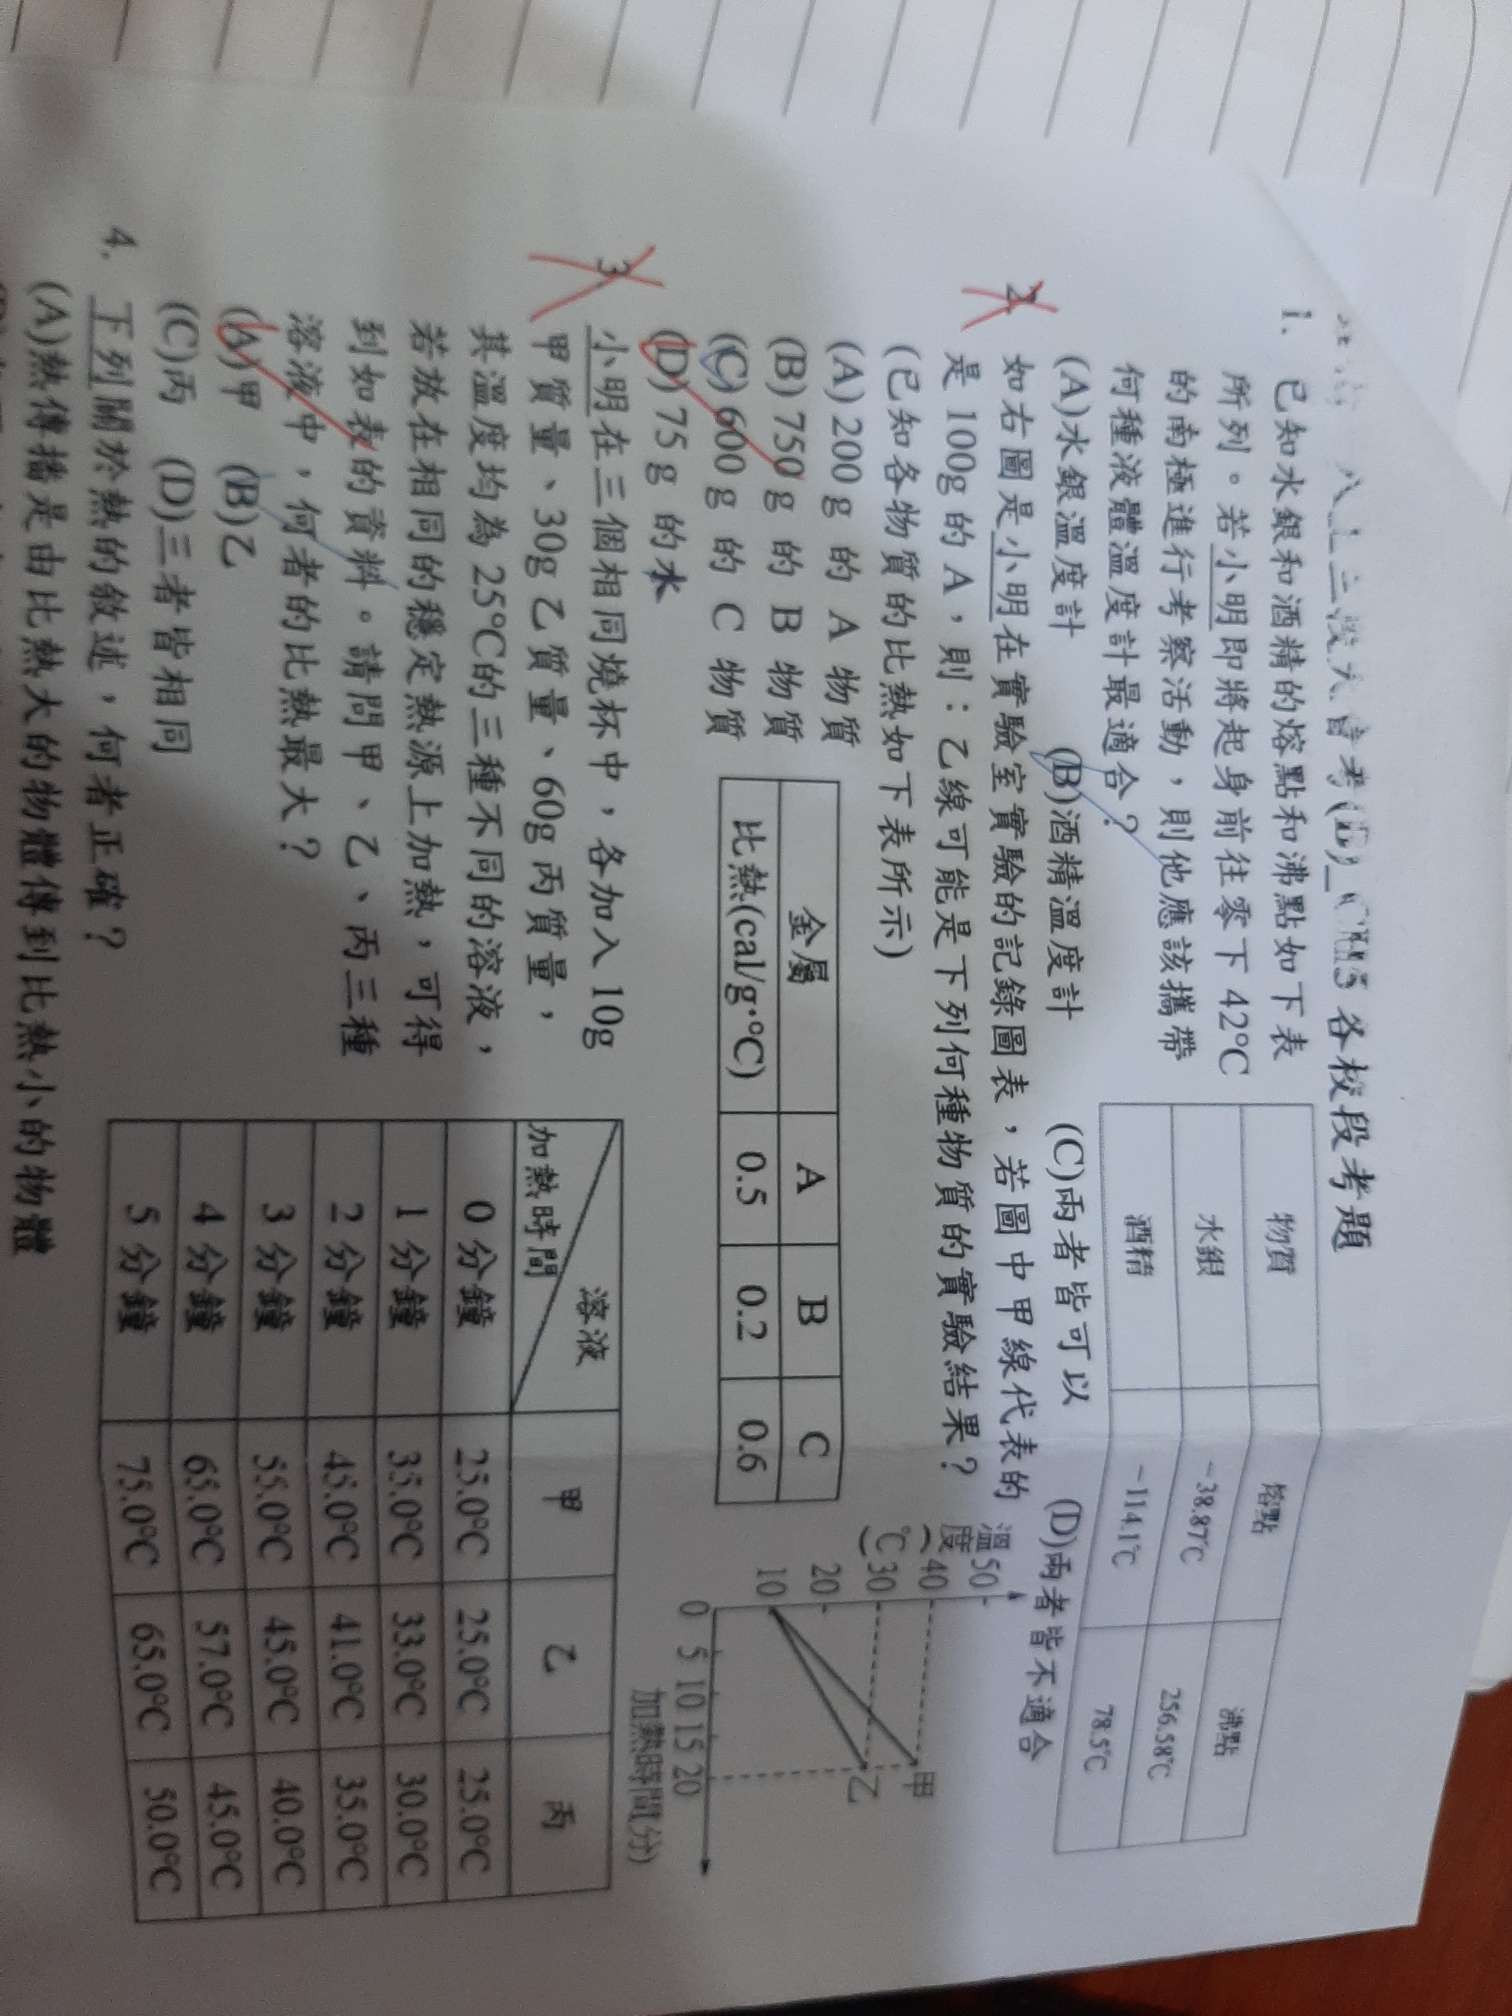 各校段考題
1. 已知水銀和酒精的熔點和沸點如下表
所列。若小明即將起身前往零下42°C
的南極進行考察活動，則他應該攜帶
何種液體溫度計最適合？
(A)水銀溫度計 (B)酒精溫度計 (C)兩者皆可以 (D)兩者皆不適合
物質 熔點 沸點
水銀 -38.87°C 256.58°C
酒精 -114.1°C 78.5°C
2. 如右圖是小明在實驗室實驗的記錄圖表，若圖中甲線代表的
是100g的A，則：乙線可能是下列何種物質的實驗結果？
(已知各物質的比熱如下表所示)
(A) 200 g 的 A 物質
(B) 750 g 的 B 物質
(C) 600 g 的 C 物質
(D) 75 g 的水
金屬 A B C
比熱(cal/g·°C) 0.5 0.2 0.6
溫度(°C)
50
40
30
20
10
0 5 10 15 20
甲
乙
加熱時間(分)
3. 小明在三個相同燒杯中，各加入10g
甲質量、30g乙質量、60g丙質量，
其溫度均為25°C的三種不同的溶液，
若放在相同的穩定熱源上加熱，可得
到如表的資料。請問甲、乙、丙三種
溶液中，何者的比熱最大？
(A)甲 (B)乙
(C)丙 (D)三者皆相同
溶液 甲 乙 丙
加熱時間
0分鐘 25.0°C 25.0°C 25.0°C
1分鐘 35.0°C 33.0°C 30.0°C
2分鐘 45.0°C 41.0°C 35.0°C
3分鐘 55.0°C 45.0°C 40.0°C
4分鐘 65.0°C 57.0°C 45.0°C
5分鐘 75.0°C 65.0°C 50.0°C
4. 下列關於熱的敘述，何者正確？
(A)熱傳播是由比熱大的物體傳到比熱小的物體